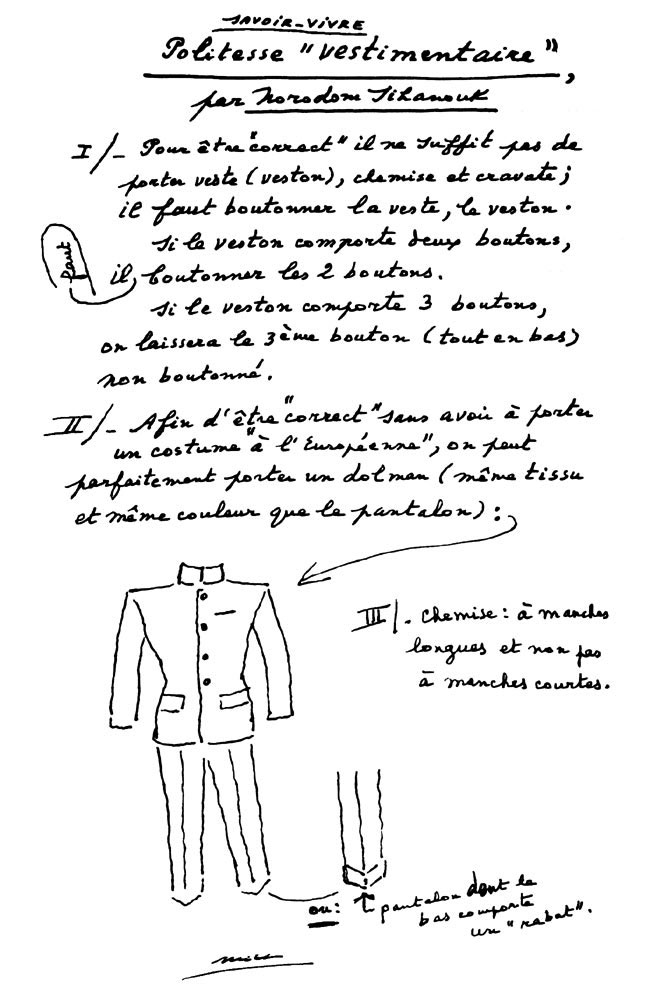 SAVOIR-VIVRE
Politesse "vestimentaire",
par Norodom Sihanouk
I/- Pour être "correct" il ne suffit pas de
porter veste (veston), chemise et cravate;
il faut boutonner la veste, le veston.
Si le veston comporte deux boutons,
il faut boutonner les 2 boutons.
Si le veston comporte 3 boutons,
on laissera le 3ème bouton (tout en bas)
non boutonné.
II/- Afin d'être "correct" sans avoir à porter
un costume "à l'Européenne", on peut
parfaitement porter un dolman (même tissu
et même couleur que le pantalon):
III/. Chemise: à manches
longues et non pas
à manches courtes.
ou: pantalon dont le
bas comporte
un "rabat".